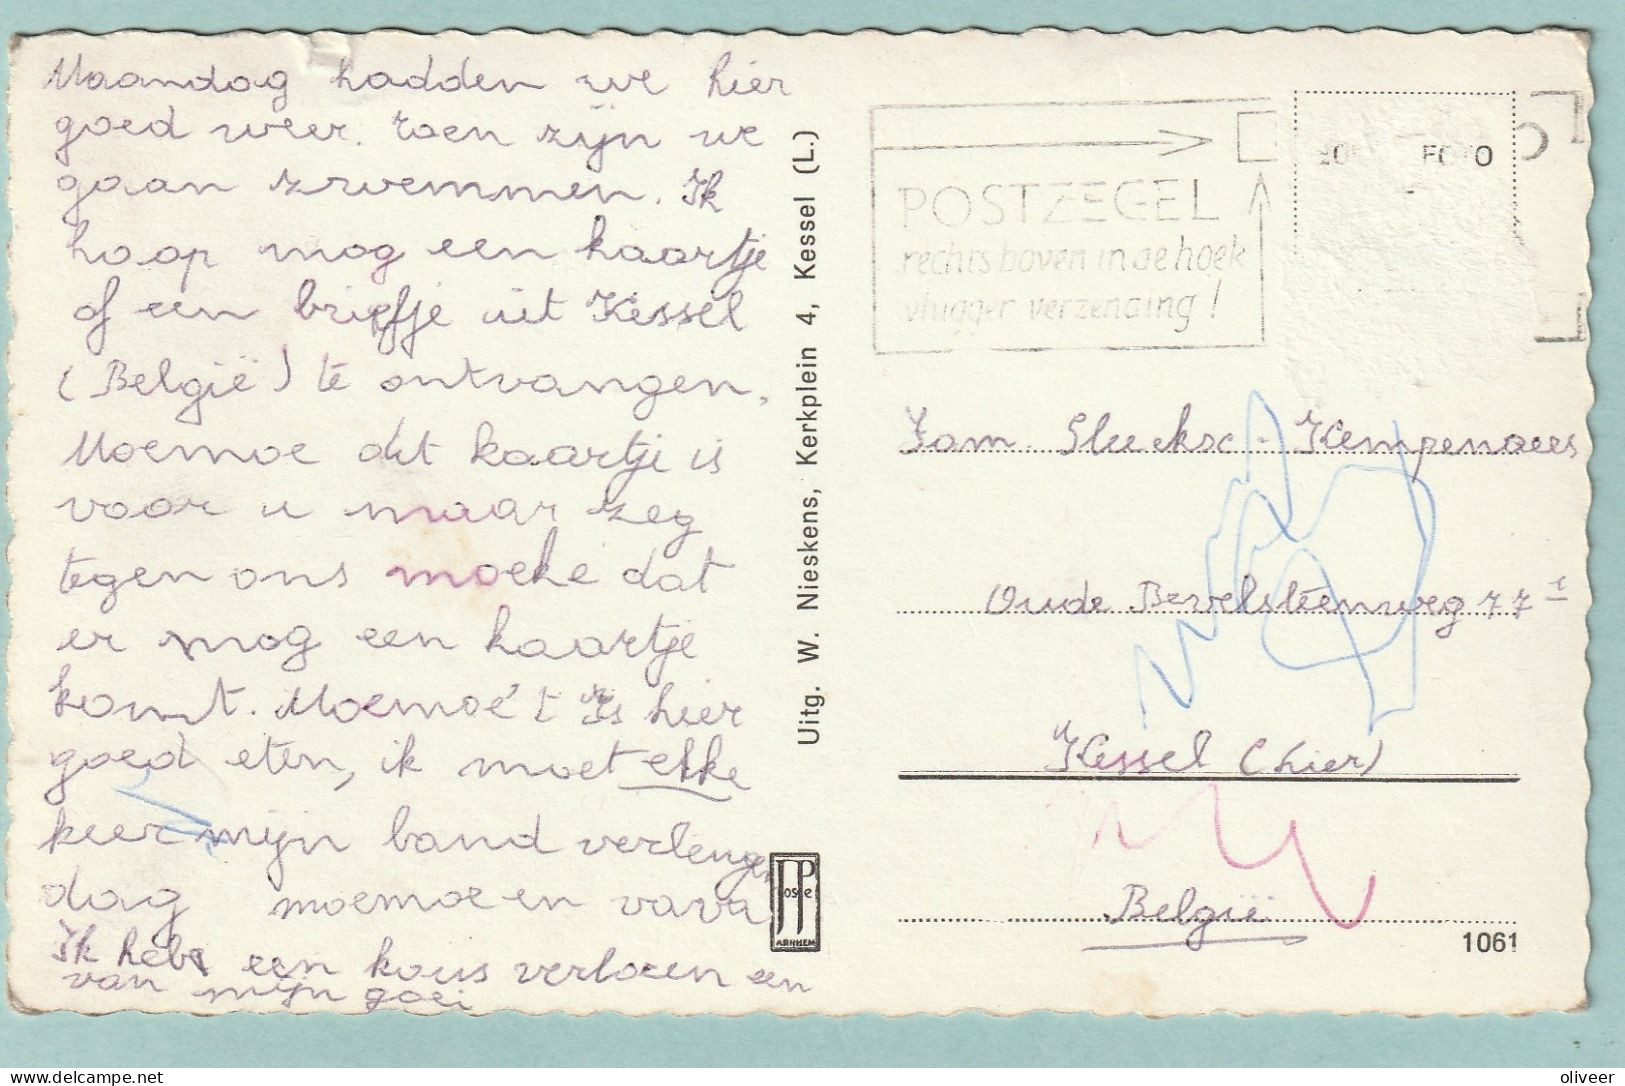 Maandag hadden we hier
goed weer. toen zijn we
gaan zwemmen. Ik
hoop mog een kaartje
of een briefje uit Kessel
(België) te ontvangen.
Moemoe dit kaartje is
voor u maar zeg
tegen ons moeke dat
er mog een kaartje
komt. Moemoe 't Is hier
goed eten, ik moet elke
keer mijn band verlengen
dag moemoe en vava
Ik heb een kous verloren een
van mijn goei
Uitg. W. Nieskens, Kerkplein 4, Kessel (L.)
JosPe
ARNHEM
POSTZEGEL
rechts boven in de hoek
vlugger verzending!
FOTO
Fam. - Kempenaers
Oude Bevelsteenweg 77
Kessel (Lier)
België
1061
oliveer